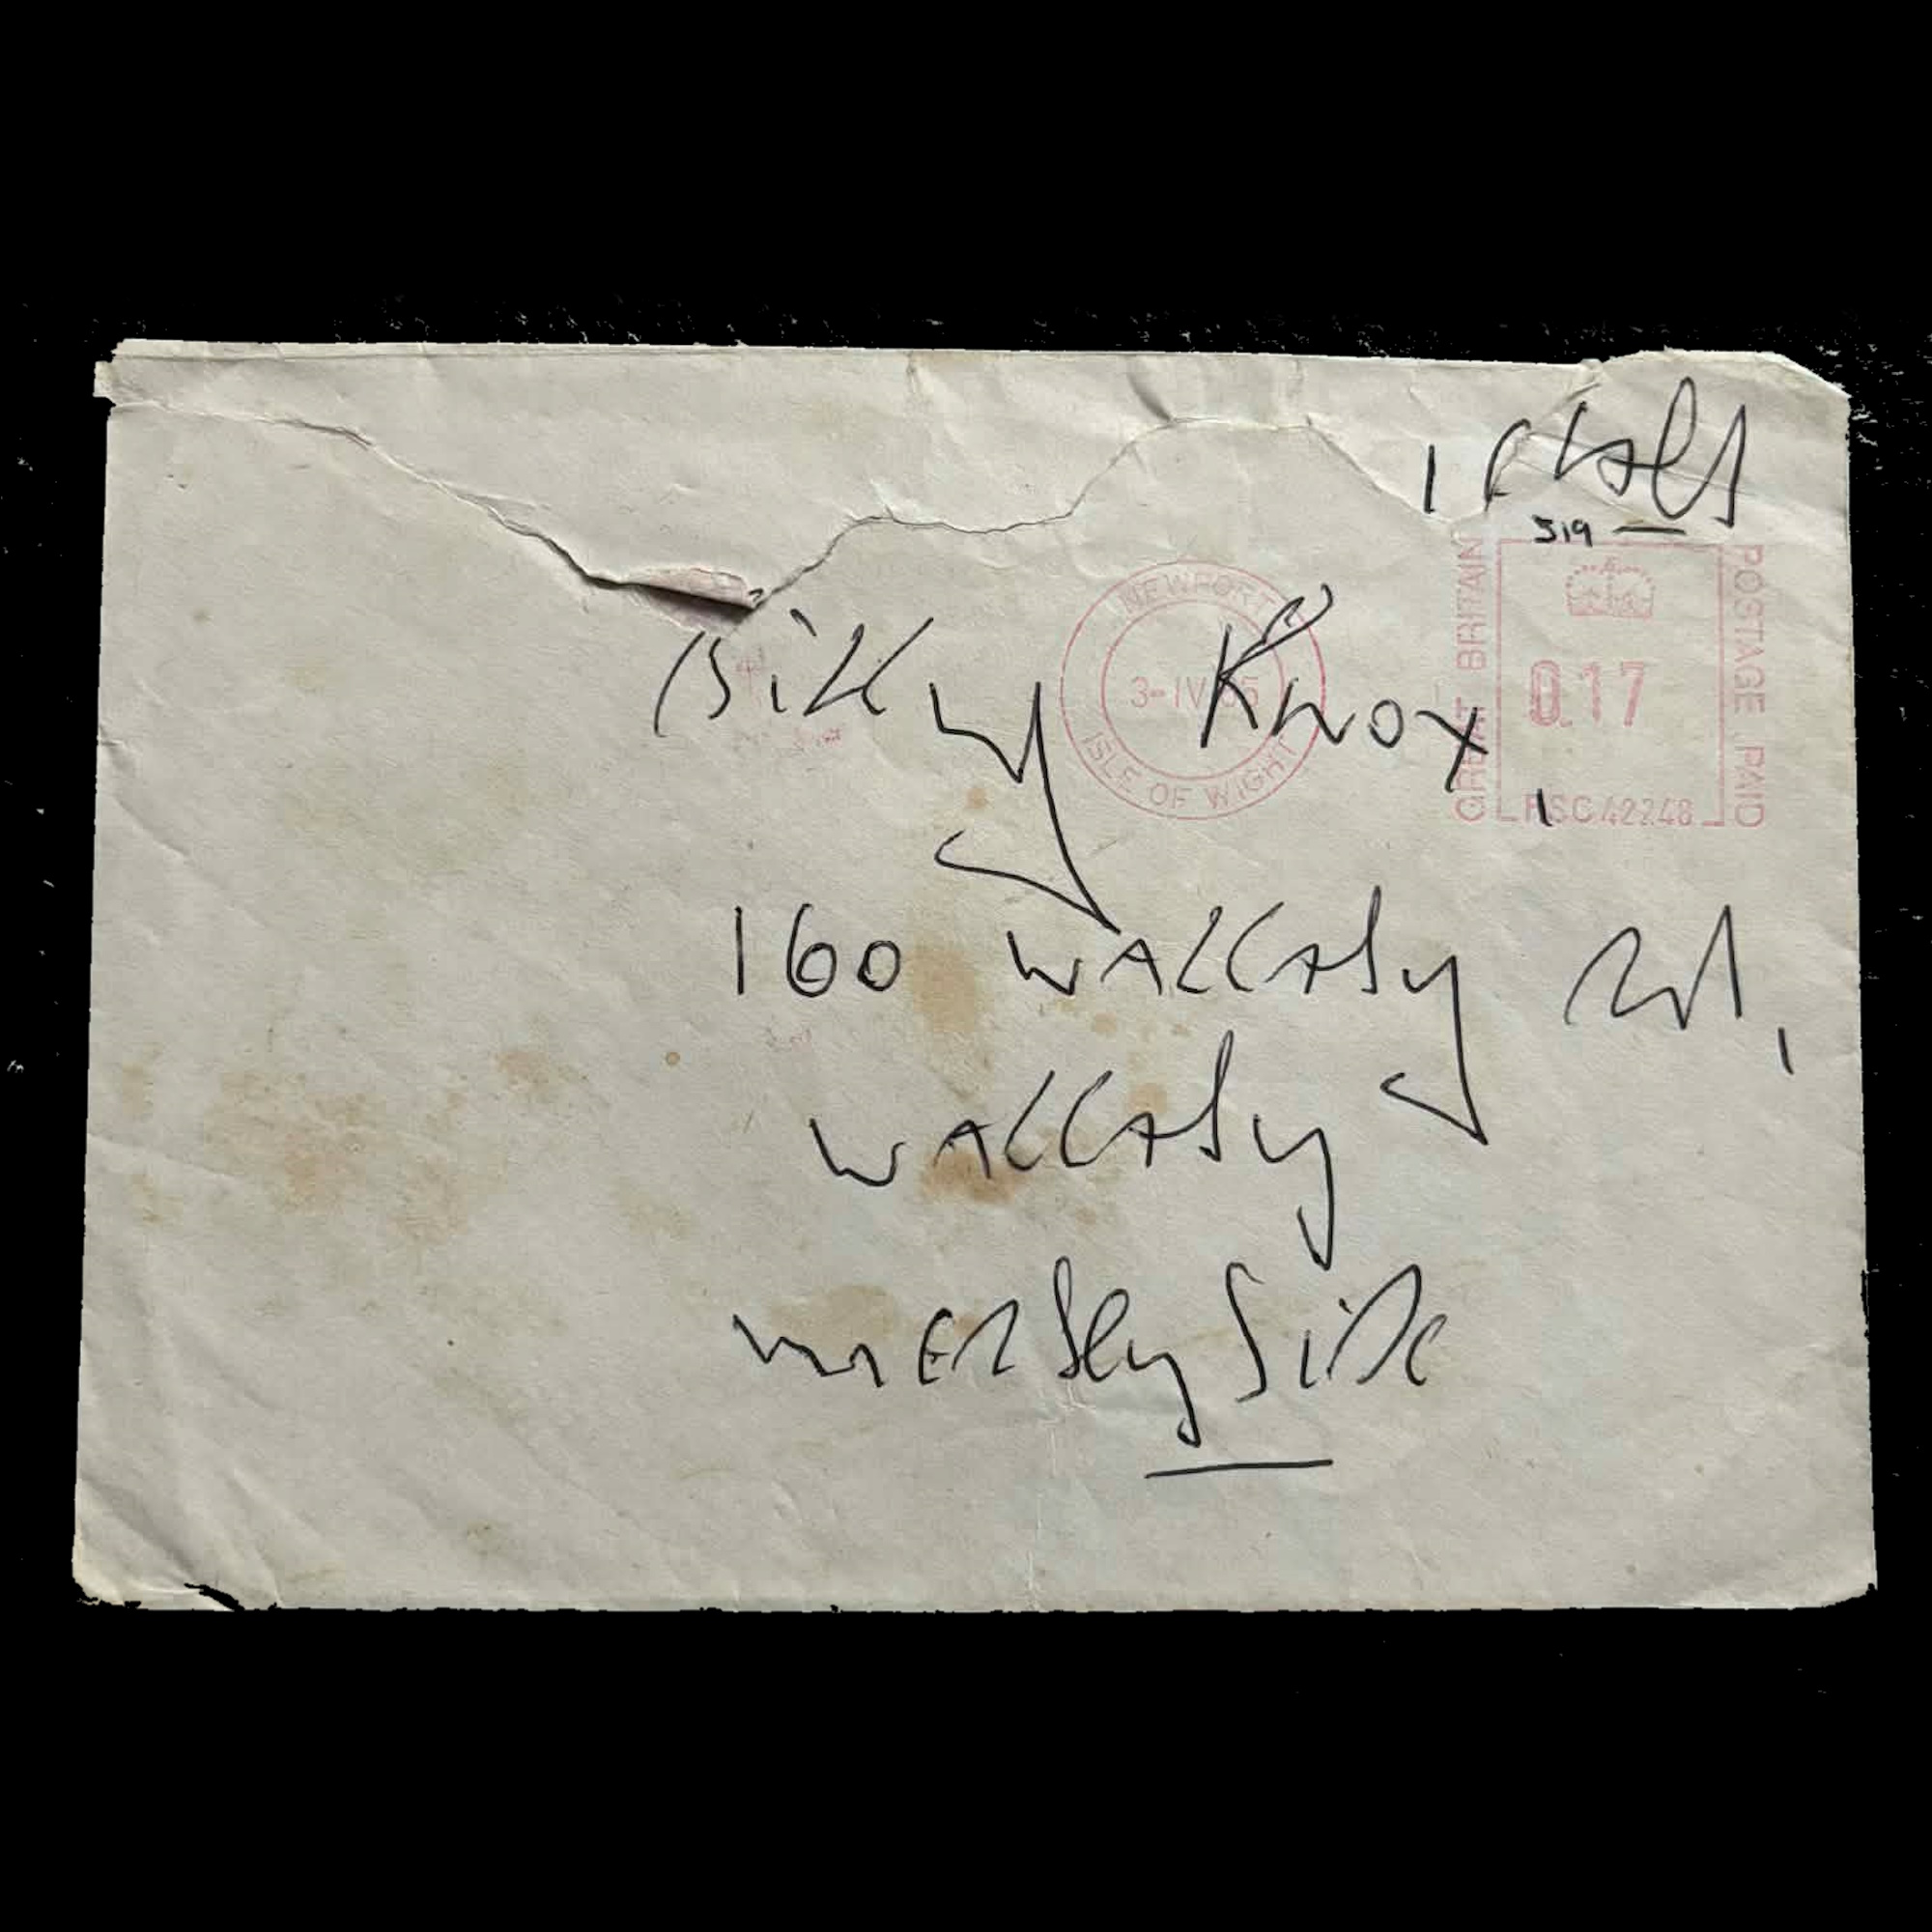 519
NEWPORT
3-IV 85
ISLE OF WIGHT
GREAT BRITAIN
0.17
POSTAGE PAID
Billy Knox,
160 WALLASy Rd,
WALLASy
MERSeySiDe